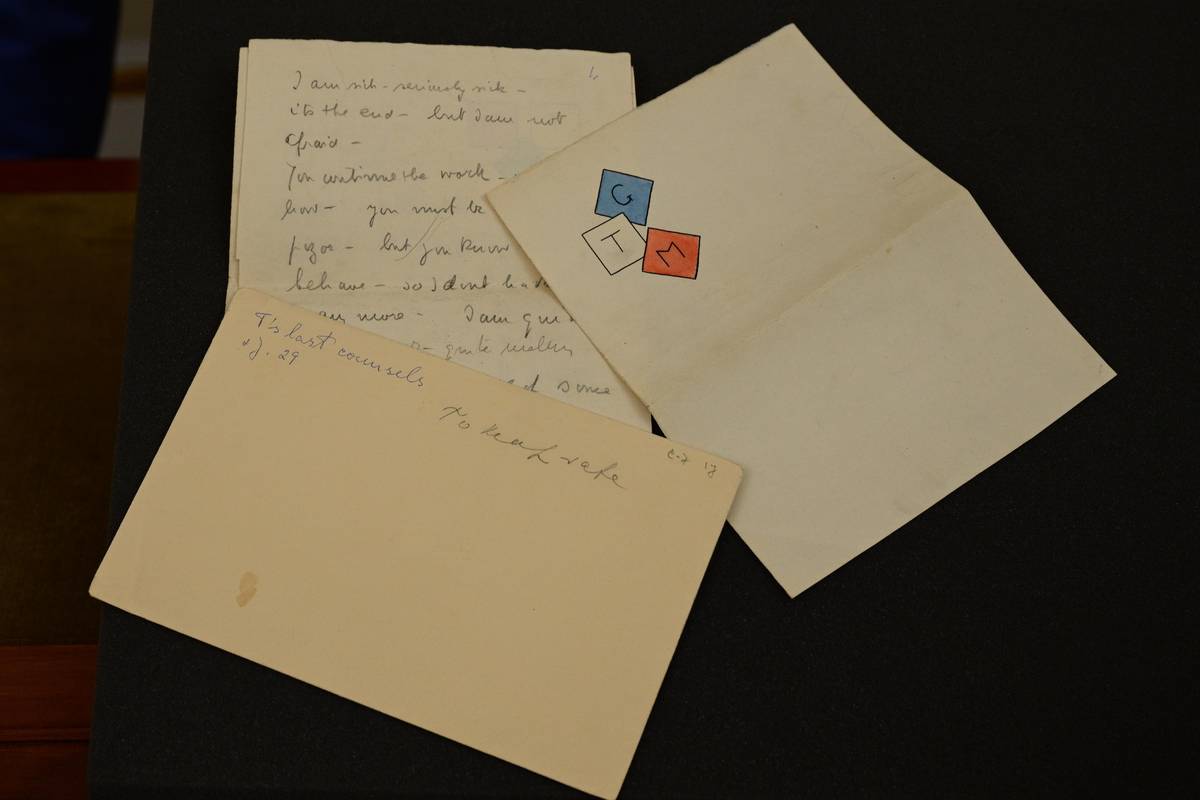 I am sick - seriously sick -
its the end - but I am not
afraid -
You continue the work -
how - you must be
but you know
behave - so I dont have
any more - I am
quite
since
T's last counsels
29
To keep safe
G
T
M